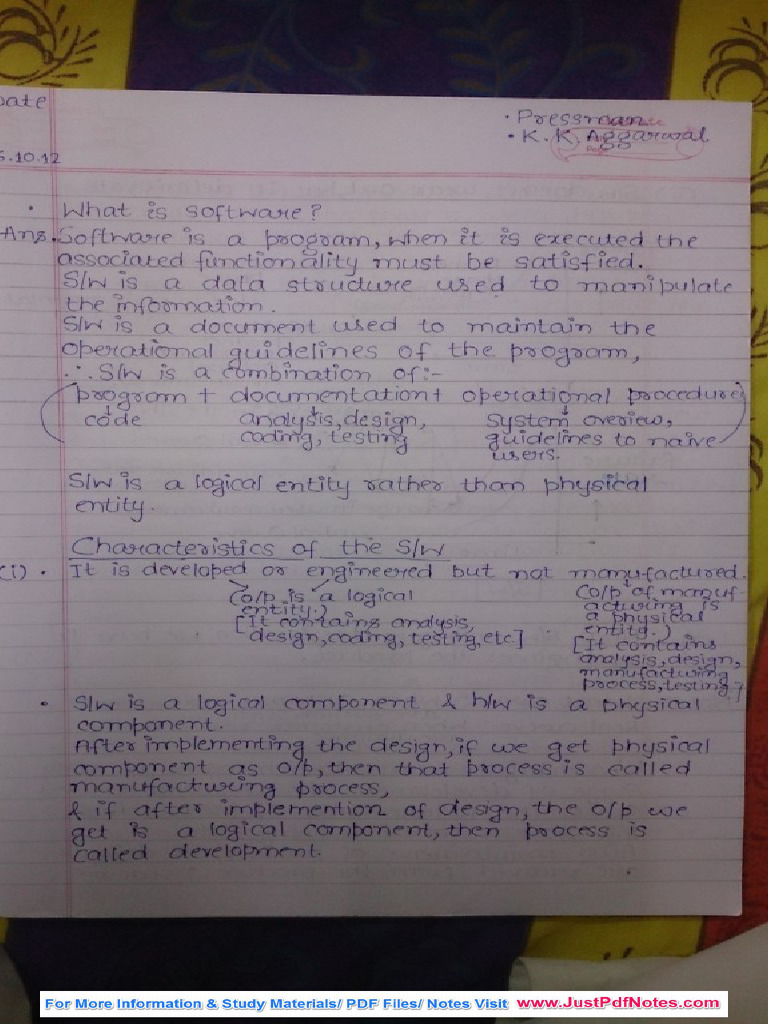 Date
• Pressman
• K. K. Aggarwal
5.10.12
• What is software?
Ans. Software is a program, when it is executed the
associated functionality must be satisfied.
S/W is a data structure used to manipulate
the information.
S/W is a document used to maintain the
operational guidelines of the program,
∴ S/W is a combination of:-
(program + documentation + operational procedure)
↓ ↓ ↓
code analysis, design, system overview,
coding, testing guidelines to naive
users.
S/W is a logical entity rather than physical
entity.
Characteristics of the S/W
(i) • It is developed or engineered but not manufactured.
(o/p is a logical
entity.)
[It contains analysis,
design, coding, testing, etc.]
(o/p of manuf-
acturing is
a physical
entity.)
[It contains
analysis, design,
manufacturing
process, testing]
• S/W is a logical component & h/w is a physical
component.
After implementing the design, if we get physical
component as o/p, then that process is called
manufacturing process,
& if after implemention of design, the o/p we
get is a logical component, then process is
called development.
For More Information & Study Materials/ PDF Files/ Notes Visit www.JustPdfNotes.com